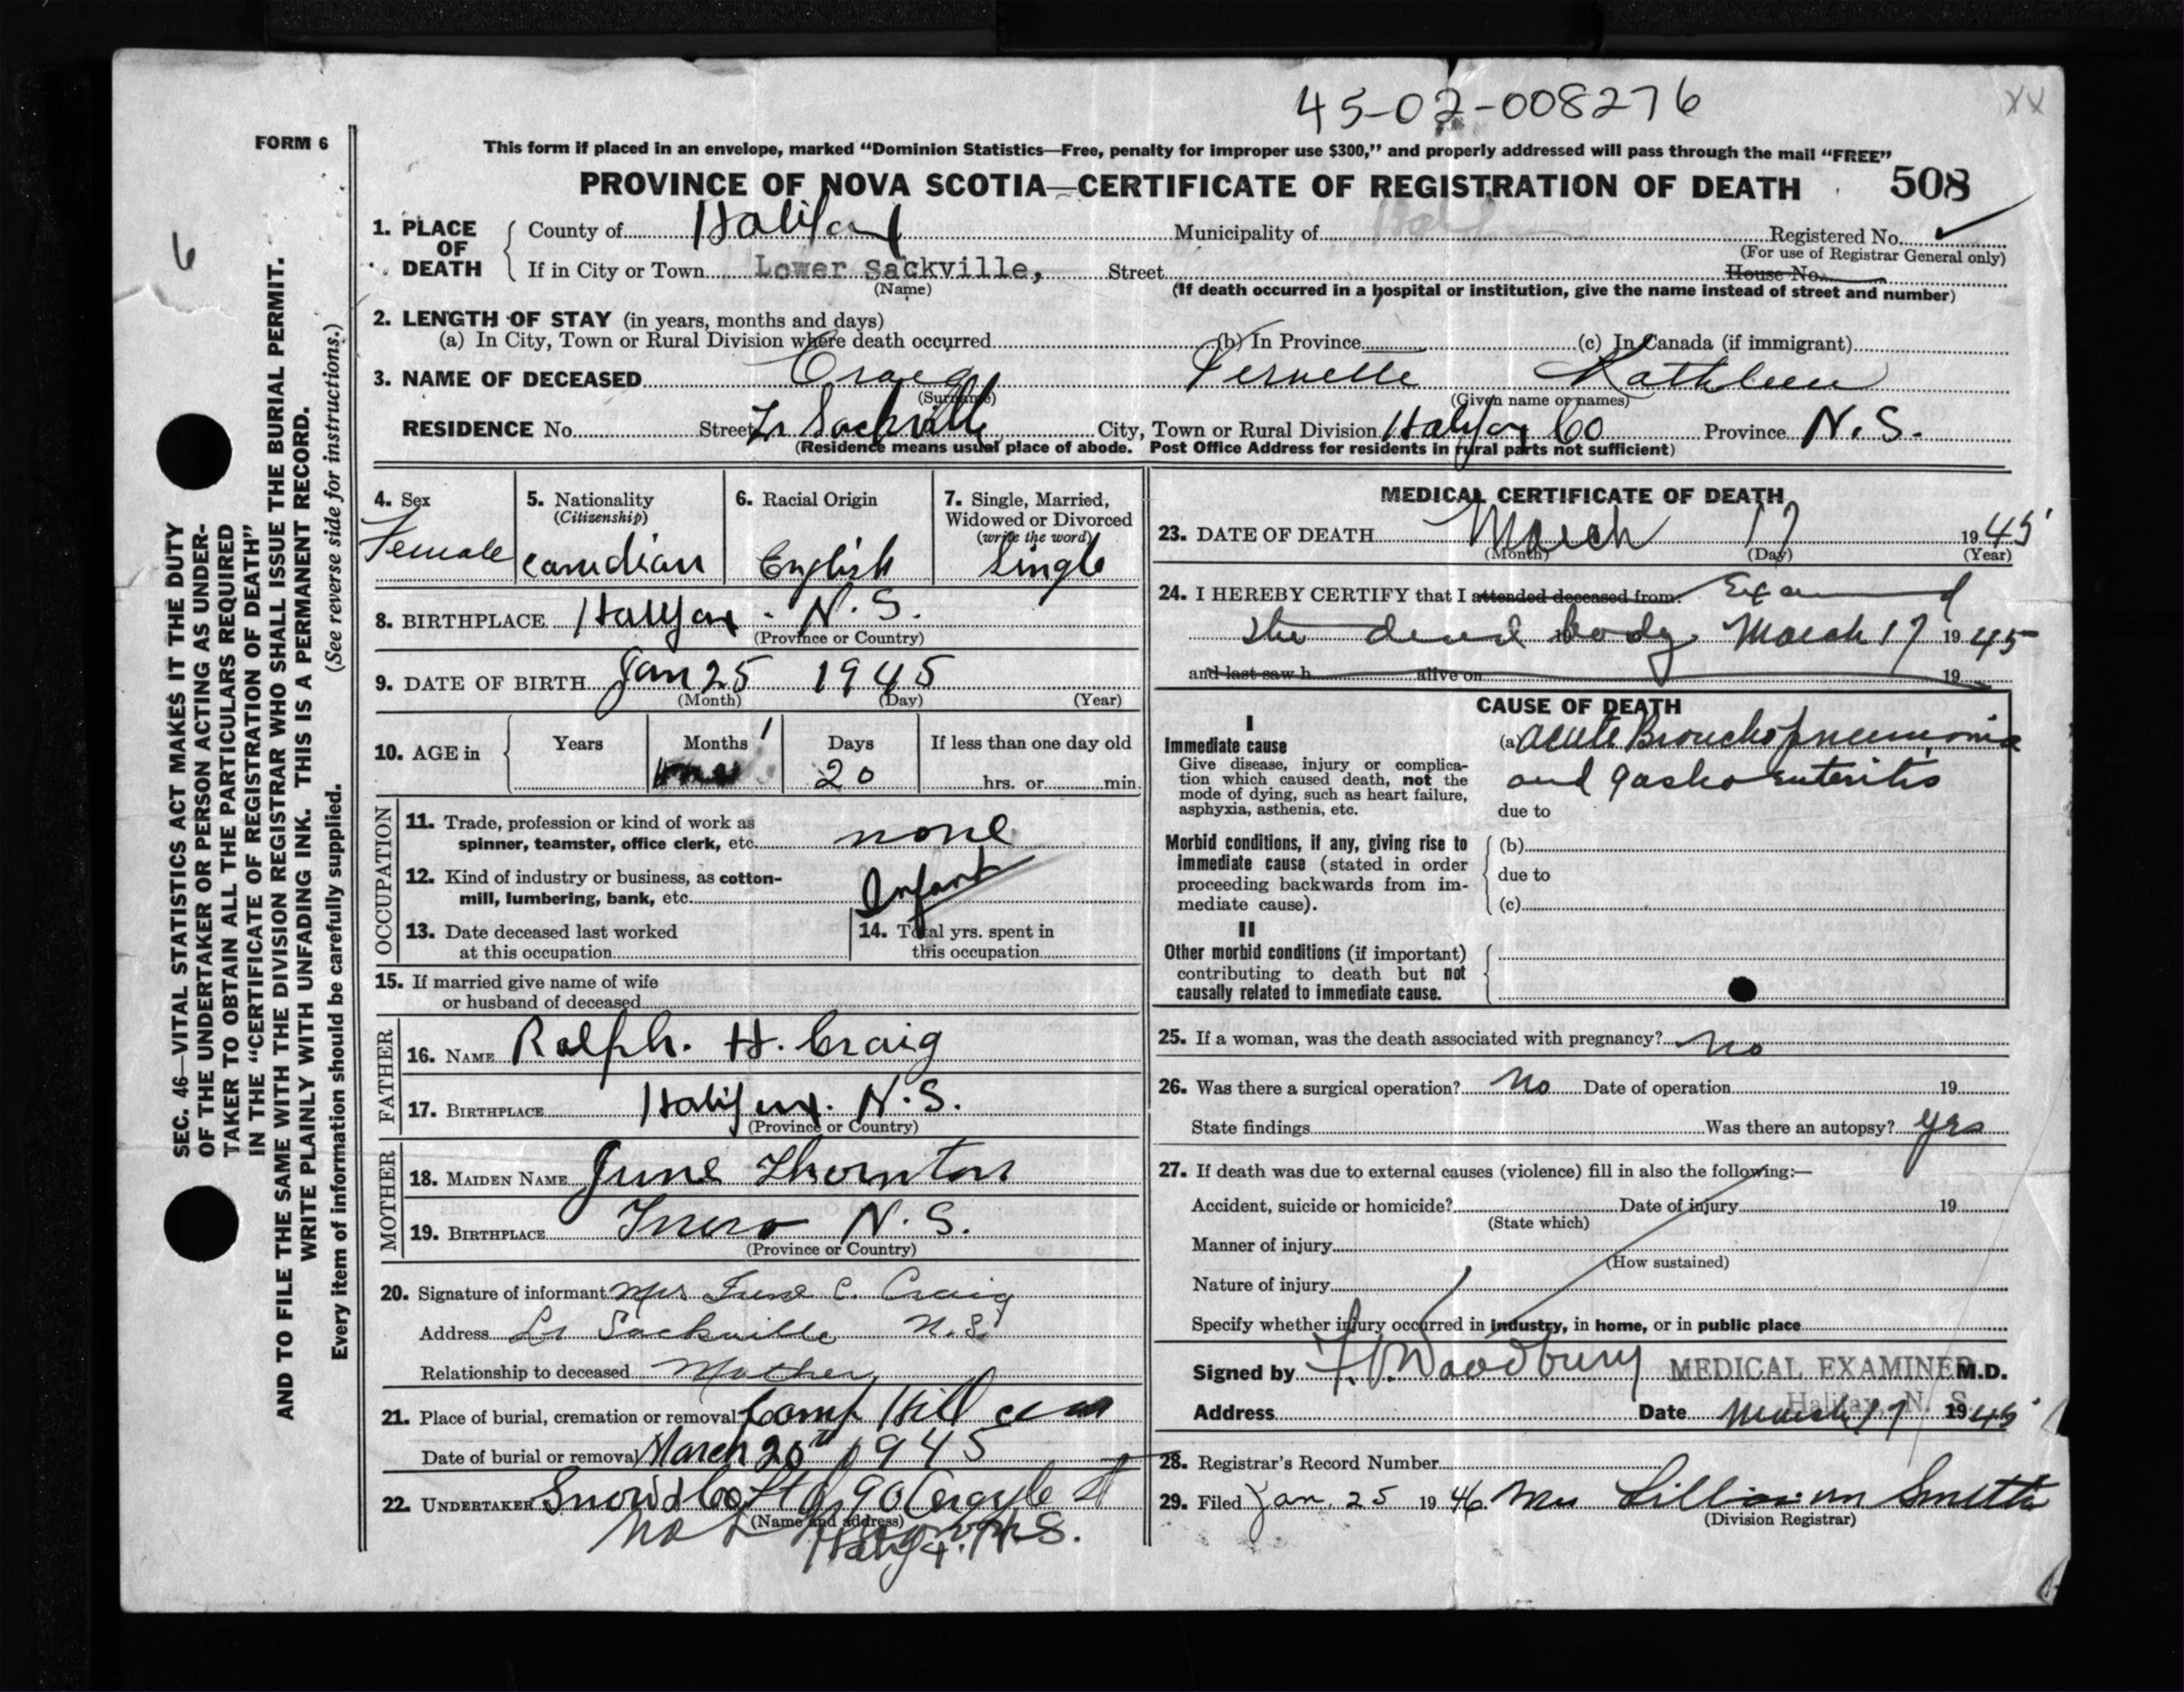 45-02-008276
XX
FORM 6
This form if placed in an envelope, marked "Dominion Statistics—Free, penalty for improper use $300," and properly addressed will pass through the mail "FREE"
PROVINCE OF NOVA SCOTIA—CERTIFICATE OF REGISTRATION OF DEATH 508
6
SEC. 46—VITAL STATISTICS ACT MAKES IT THE DUTY
OF THE UNDERTAKER OR PERSON ACTING AS UNDER-
TAKER TO OBTAIN ALL THE PARTICULARS REQUIRED
IN THE "CERTIFICATE OF REGISTRATION OF DEATH"
AND TO FILE THE SAME WITH THE DIVISION REGISTRAR WHO SHALL ISSUE THE BURIAL PERMIT.
WRITE PLAINLY WITH UNFADING INK. THIS IS A PERMANENT RECORD.
Every item of information should be carefully supplied. (See reverse side for instructions.)
1. PLACE OF DEATH County of Halifax Municipality of Registered No. ✓
(For use of Registrar General only)
If in City or Town Lower Sackville, Street House No.
(Name) (If death occurred in a hospital or institution, give the name instead of street and number)
2. LENGTH OF STAY (in years, months and days)
(a) In City, Town or Rural Division where death occurred (b) In Province (c) In Canada (if immigrant)
3. NAME OF DECEASED Craig Vernette Kathleen
(Surname) (Given name or names)
RESIDENCE No. Street Lr Sackville City, Town or Rural Division Halifax Co Province N.S.
(Residence means usual place of abode. Post Office Address for residents in rural parts not sufficient)
4. Sex Female
5. Nationality
(Citizenship)
Canadian
6. Racial Origin
English
7. Single, Married,
Widowed or Divorced
(write the word)
Single
8. BIRTHPLACE Halifax - N.S.
(Province or Country)
9. DATE OF BIRTH Jan 25 1945
(Month) (Day) (Year)
10. AGE in Years Months 1 Days 20 If less than one day old
hrs. or min.
OCCUPATION
11. Trade, profession or kind of work as
spinner, teamster, office clerk, etc. none
12. Kind of industry or business, as cotton-
mill, lumbering, bank, etc. Infant
13. Date deceased last worked
at this occupation
14. Total yrs. spent in
this occupation
15. If married give name of wife
or husband of deceased
FATHER
16. NAME Ralph. H. Craig
17. BIRTHPLACE Halifax. N.S.
(Province or Country)
MOTHER
18. MAIDEN NAME June Thornton
19. BIRTHPLACE Truro N.S.
(Province or Country)
20. Signature of informant Mrs June C. Craig
Address Lr Sackville N.S
Relationship to deceased Mother
21. Place of burial, cremation or removal Camp Hill cem
Date of burial or removal March 20th 1945
22. UNDERTAKER Snow & Co Ltd, 90 Argyle St
(Name and address)
Halifax. N.S.
MEDICAL CERTIFICATE OF DEATH
23. DATE OF DEATH March 17 1945
(Month) (Day) (Year)
24. I HEREBY CERTIFY that I attended deceased from: Examined
the dead body March 17 1945
and last saw h alive on 19
CAUSE OF DEATH
I
Immediate cause
Give disease, injury or complica-
tion which caused death, not the
mode of dying, such as heart failure,
asphyxia, asthenia, etc.
(a) acute Bronchopneumonia
and gastro enteritis
due to
Morbid conditions, if any, giving rise to
immediate cause (stated in order
proceeding backwards from im-
mediate cause).
(b)
due to
(c)
II
Other morbid conditions (if important)
contributing to death but not
causally related to immediate cause.
25. If a woman, was the death associated with pregnancy? no
26. Was there a surgical operation? no Date of operation 19
State findings Was there an autopsy? yes
27. If death was due to external causes (violence) fill in also the following:—
Accident, suicide or homicide? Date of injury 19
(State which)
Manner of injury
(How sustained)
Nature of injury
Specify whether injury occurred in industry, in home, or in public place
Signed by F.V. Woodbury MEDICAL EXAMINER M.D.
Halifax, N. S.
Address Date March 17 1945
28. Registrar's Record Number
29. Filed Jan. 25 1946 Mrs Lillian Smith
(Division Registrar)